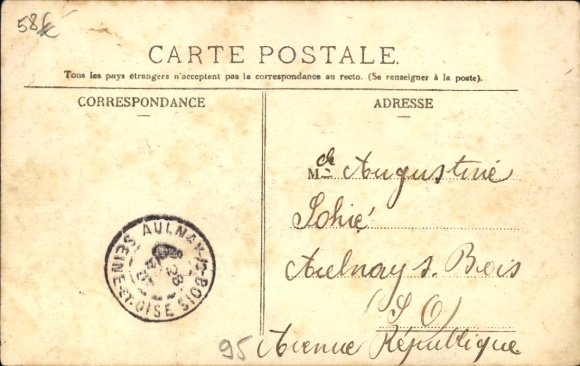 58f
CARTE POSTALE.
Tous les pays étrangers n'acceptent pas la correspondance au recto. (Se renseigner à la poste).
CORRESPONDANCE
ADRESSE
Melle Augustine
Aulnay s. Bois
(S O)
95 Avenue République
AULNAY-LS-BOIS
28
SEINE-ET-OISE